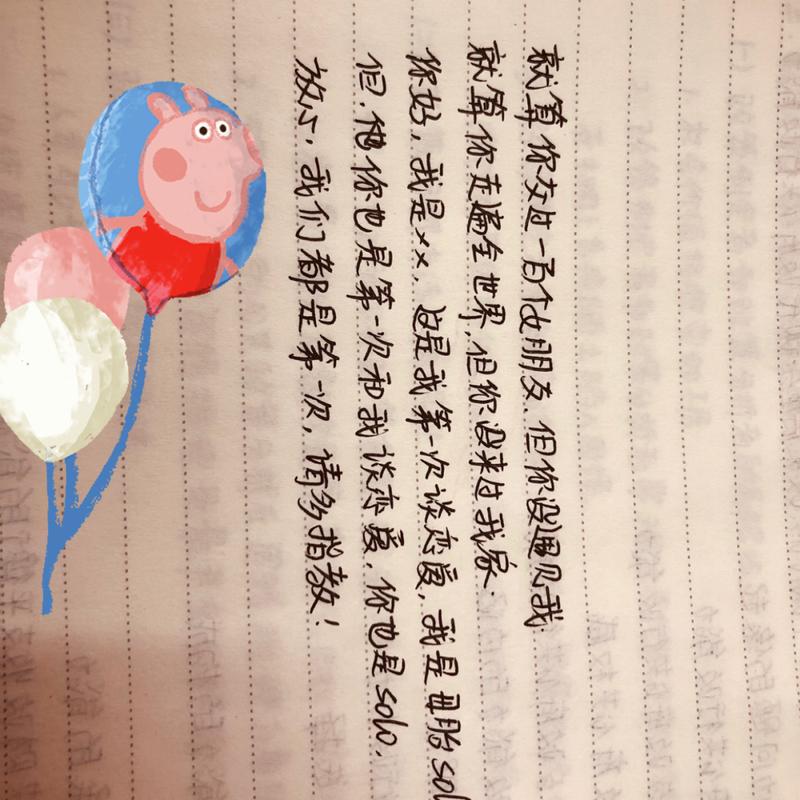 就算你交过一百个女朋友.但你没遇见我.
就算你走遍全世界,但你没来过我家.
你好,我是××,这是我第一次谈恋爱,我是母胎sol
但,他你也是第一次和我谈恋爱,你也是solo.
放心,我们都是第一次,请多指教!